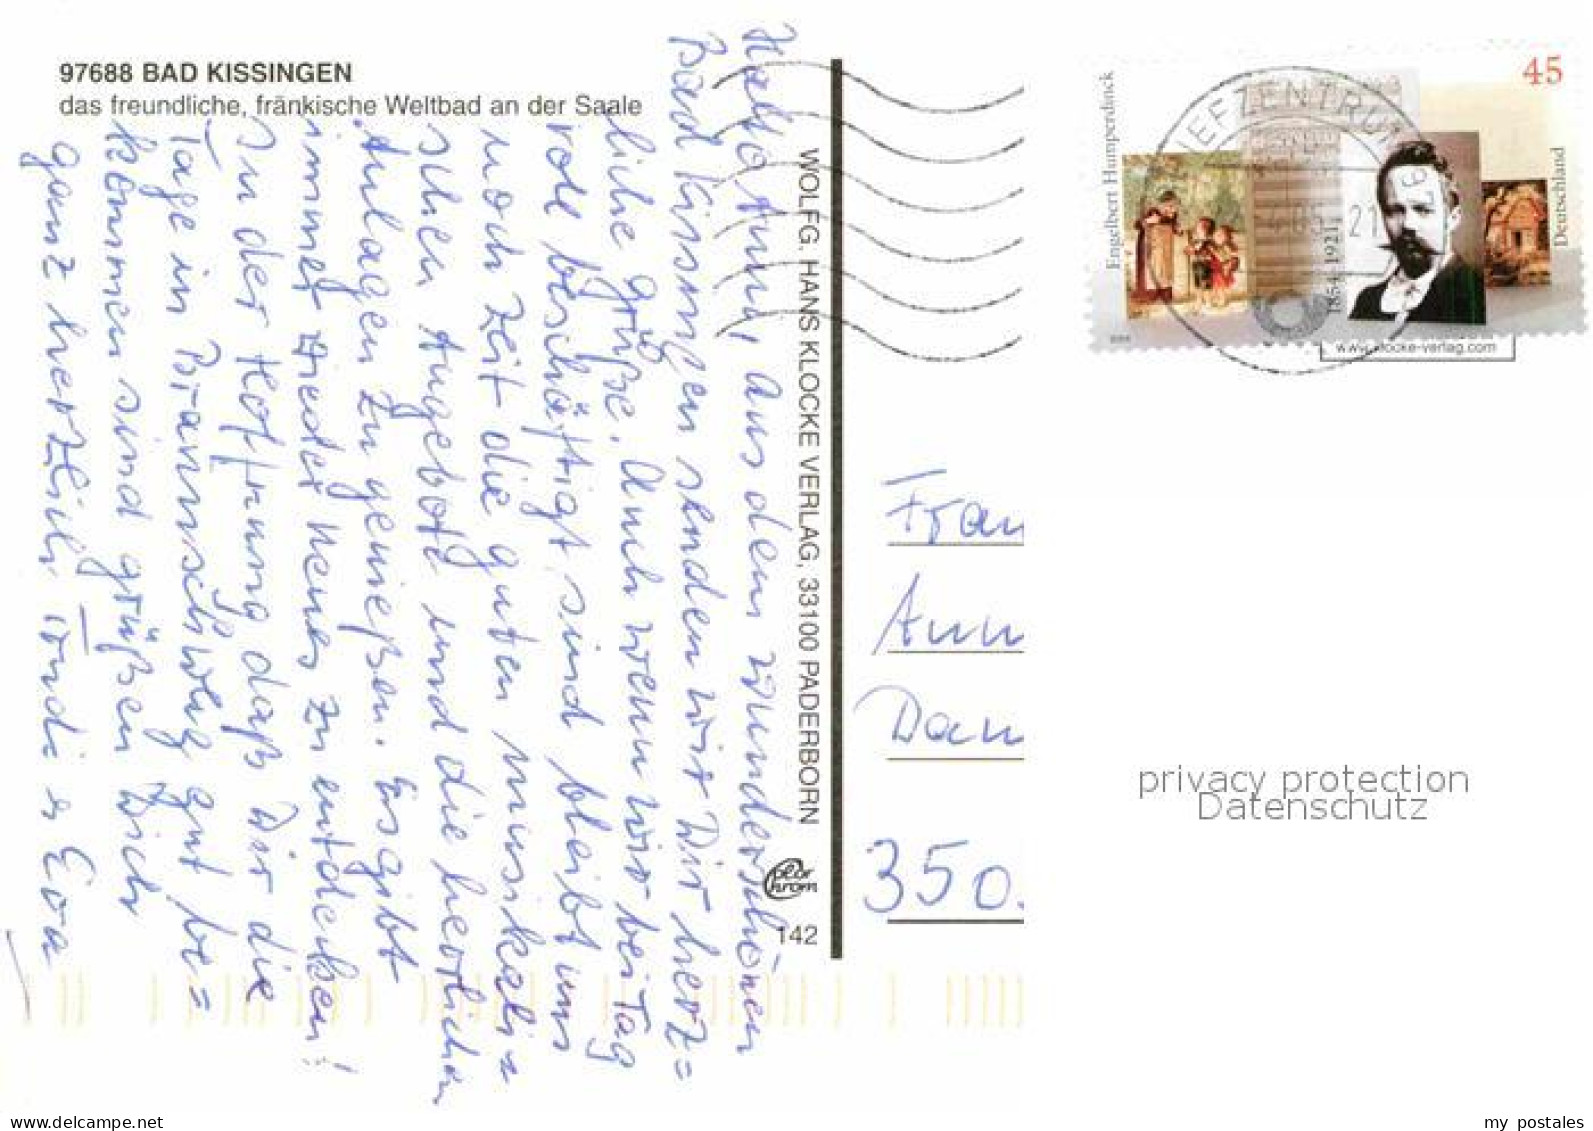 97688 BAD KISSINGEN
das freundliche, fränkische Weltbad an der Saale
Hallo Anni, aus dem wunderschönen
Bad Kissingen senden wir Dir herz=
liche Grüße. Auch wenn wir bei Tag
voll beschäftigt sind bleibt uns
noch Zeit die guten musikali=
schen Angebote und die herrlichen
Anlagen zu genießen. Es gibt
immer wieder neues zu entdecken!
In der Hoffnung daß Dir die
Tage in Braunschweig gut be=
kommen sind grüßen Dich
ganz herzlich Trudi u Eva
WOLFG. HANS KLOCKE VERLAG, 33100 PADERBORN
Color
chrom
142
Engelbert Humperdinck
1854-1921
45
Deutschland
BRIEFZENTRUM
21
www.klocke-verlag.com
Frau
Ann
Dan
350.
privacy protection
Datenschutz
delcampe.net
my_postales